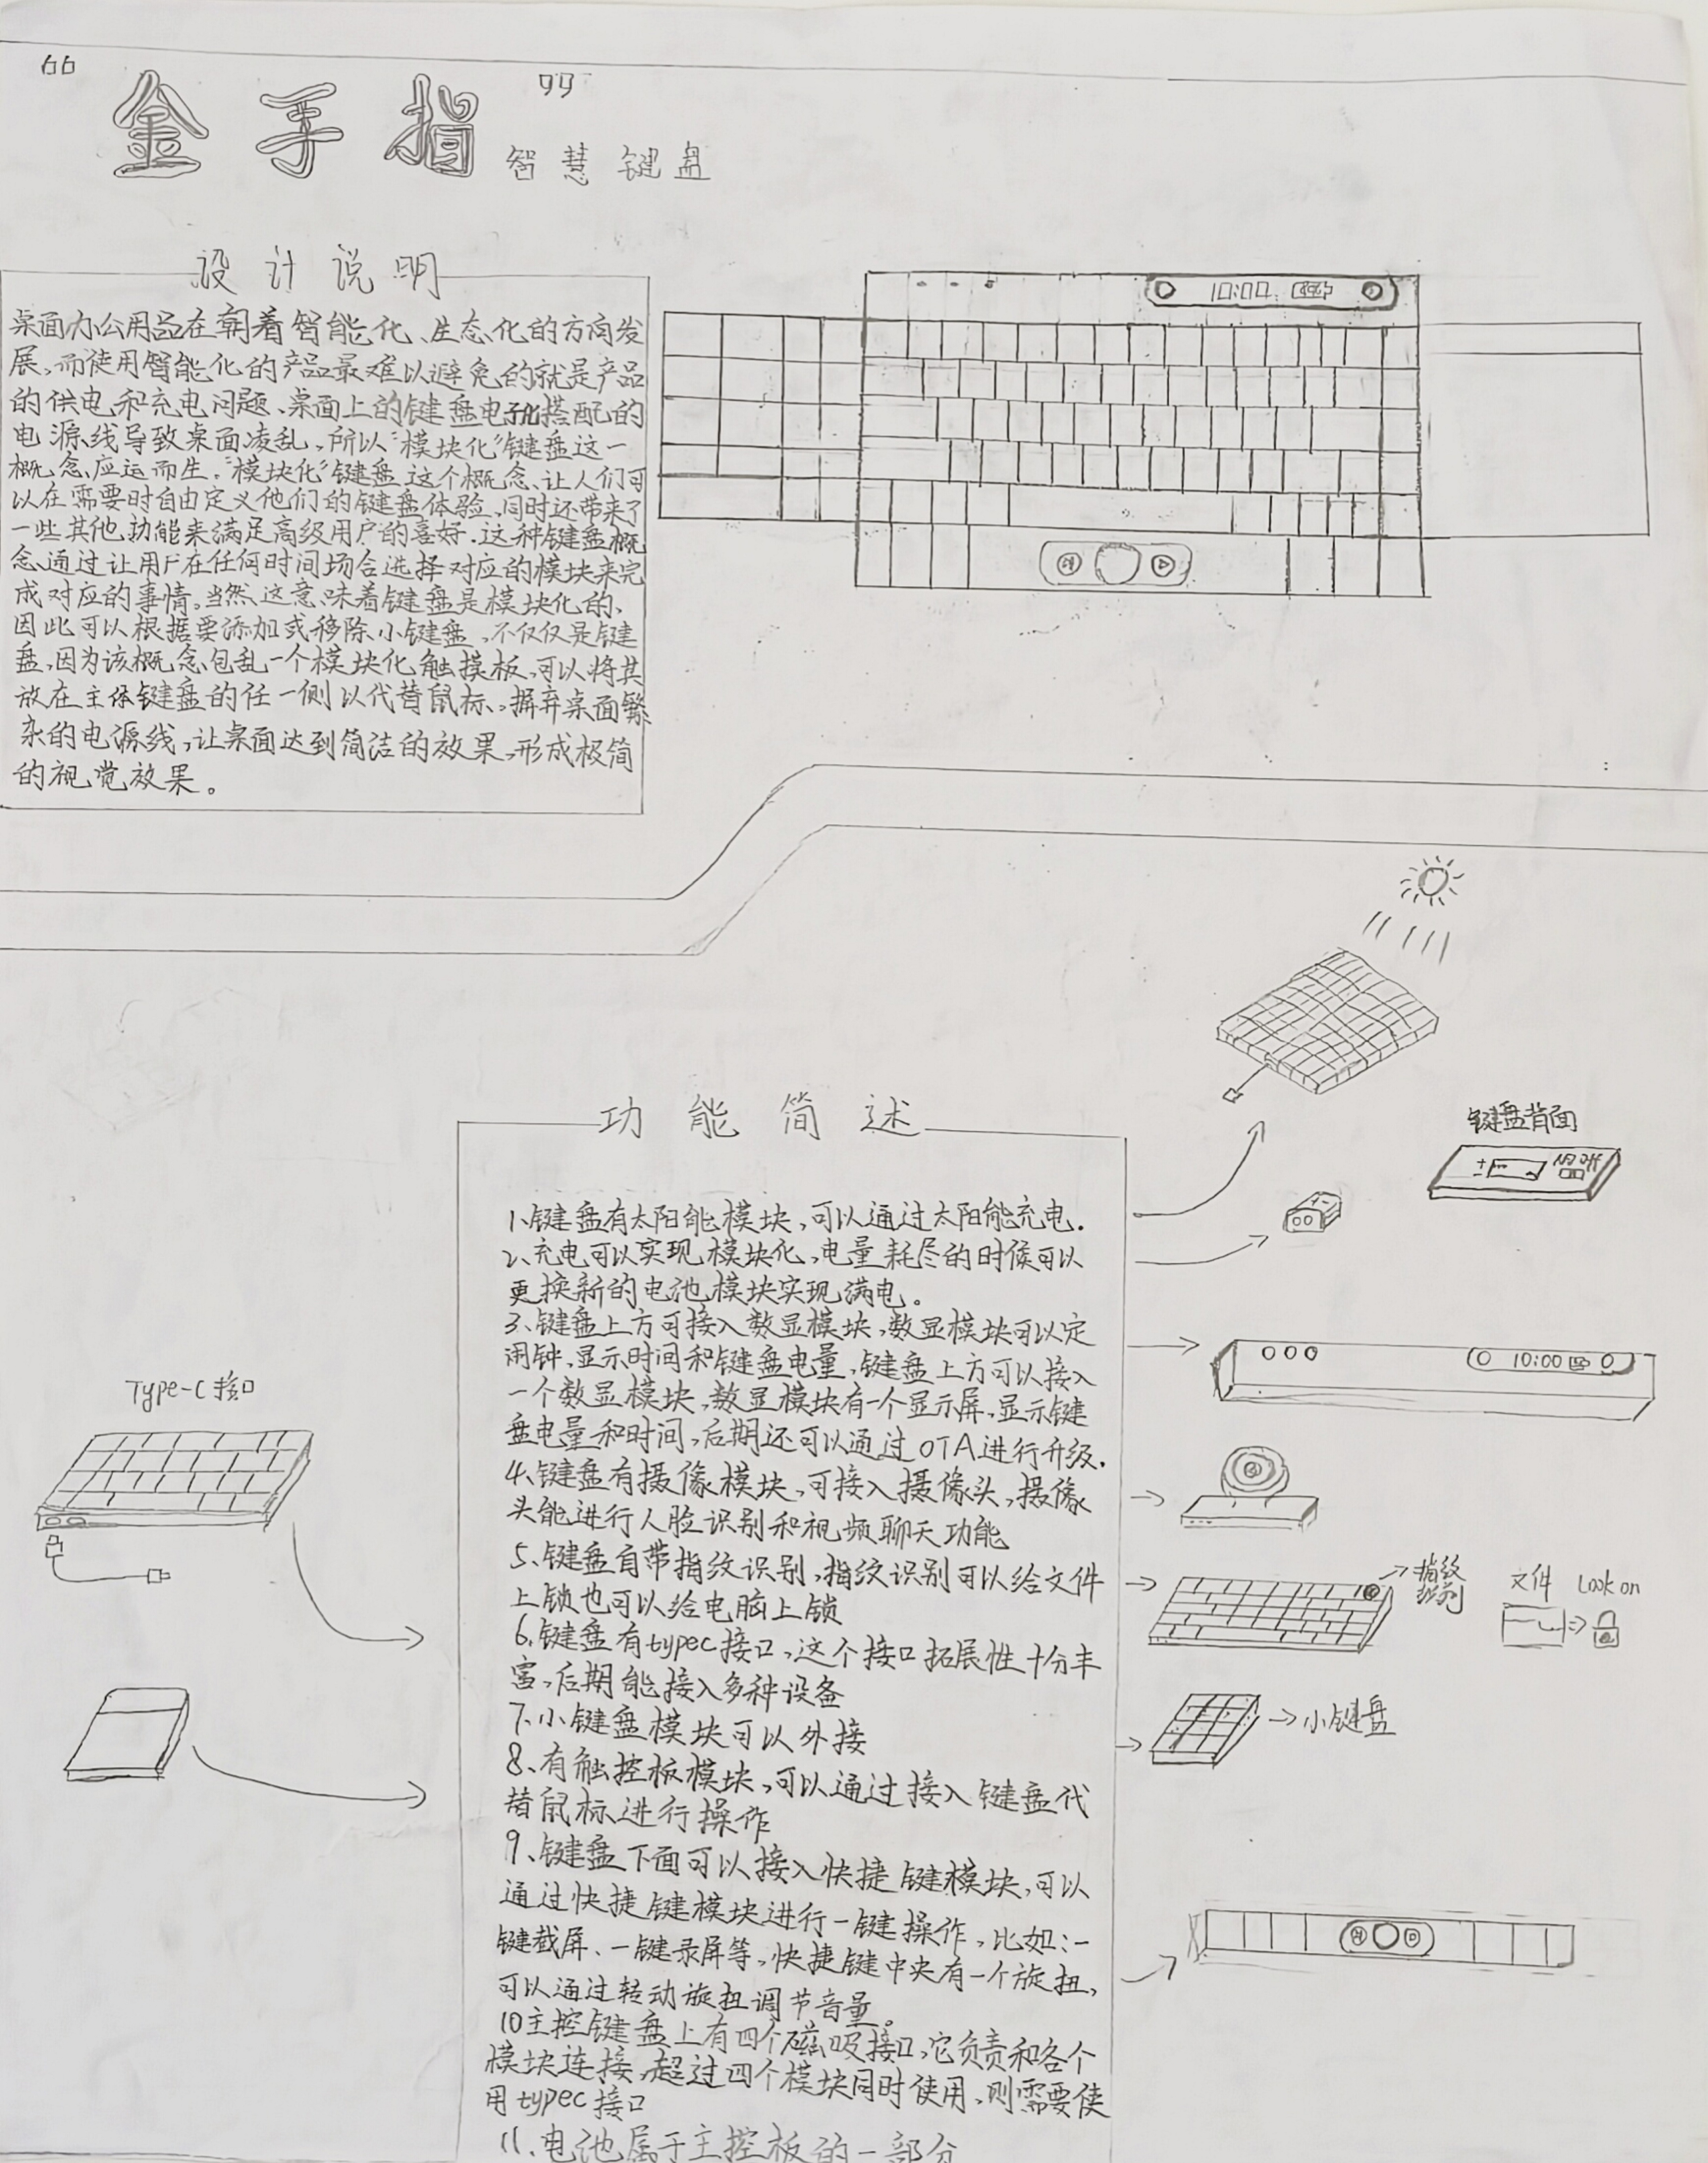 “ 金手指 ”
智慧键盘
设计说明
桌面办公用品在朝着智能化、生态化的方向发
展,而使用智能化的产品最难以避免的就是产品
的供电和充电问题、桌面上的键盘电脑搭配的
电源线导致桌面凌乱,所以“模块化”键盘这一
概念应运而生.“模块化”键盘这个概念、让人们可
以在需要时自由定义他们的键盘体验,同时还带来了
一些其他功能来满足高级用户的喜好.这种键盘概
念通过让用户在任何时间场合选择对应的模块来完
成对应的事情。当然这意味着键盘是模块化的、
因此可以根据要添加或移除小键盘,不仅仅是键
盘,因为该概念包乱一个模块化触摸板,可以将其
放在主体键盘的任一侧以代替鼠标,摒弃桌面繁
杂的电源线,让桌面达到简洁的效果,形成极简
的视觉效果。
10:00
功能简述
1、键盘有太阳能模块,可以通过太阳能充电.
2、充电可以实现模块化,电量耗尽的时候可以
更换新的电池模块实现满电。
3、键盘上方可接入数显模块,数显模块可以定
闹钟,显示时间和键盘电量,键盘上方可以接入
一个数显模块,数显模块有一个显示屏,显示键
盘电量和时间,后期还可以通过OTA进行升级.
4、键盘有摄像模块,可接入摄像头,摄像
头能进行人脸识别和视频聊天功能
5、键盘自带指纹识别,指纹识别可以给文件
上锁也可以给电脑上锁
6、键盘有typec接口,这个接口拓展性十分丰
富,后期能接入多种设备
7、小键盘模块可以外接
8、有触控板模块,可以通过接入键盘代
替鼠标进行操作
9、键盘下面可以接入快捷键模块,可以
通过快捷键模块进行一键操作,比如:一
键截屏、一键录屏等,快捷键中央有一个旋扭,
可以通过转动旋扭调节音量。
10主控键盘上有四个磁吸接口,它负责和各个
模块连接,超过四个模块同时使用,则需要使
用typec接口
11、电池属于主控板的一部分
Type-C接口
键盘背面
10:00
指纹
文件
Look on
小键盘